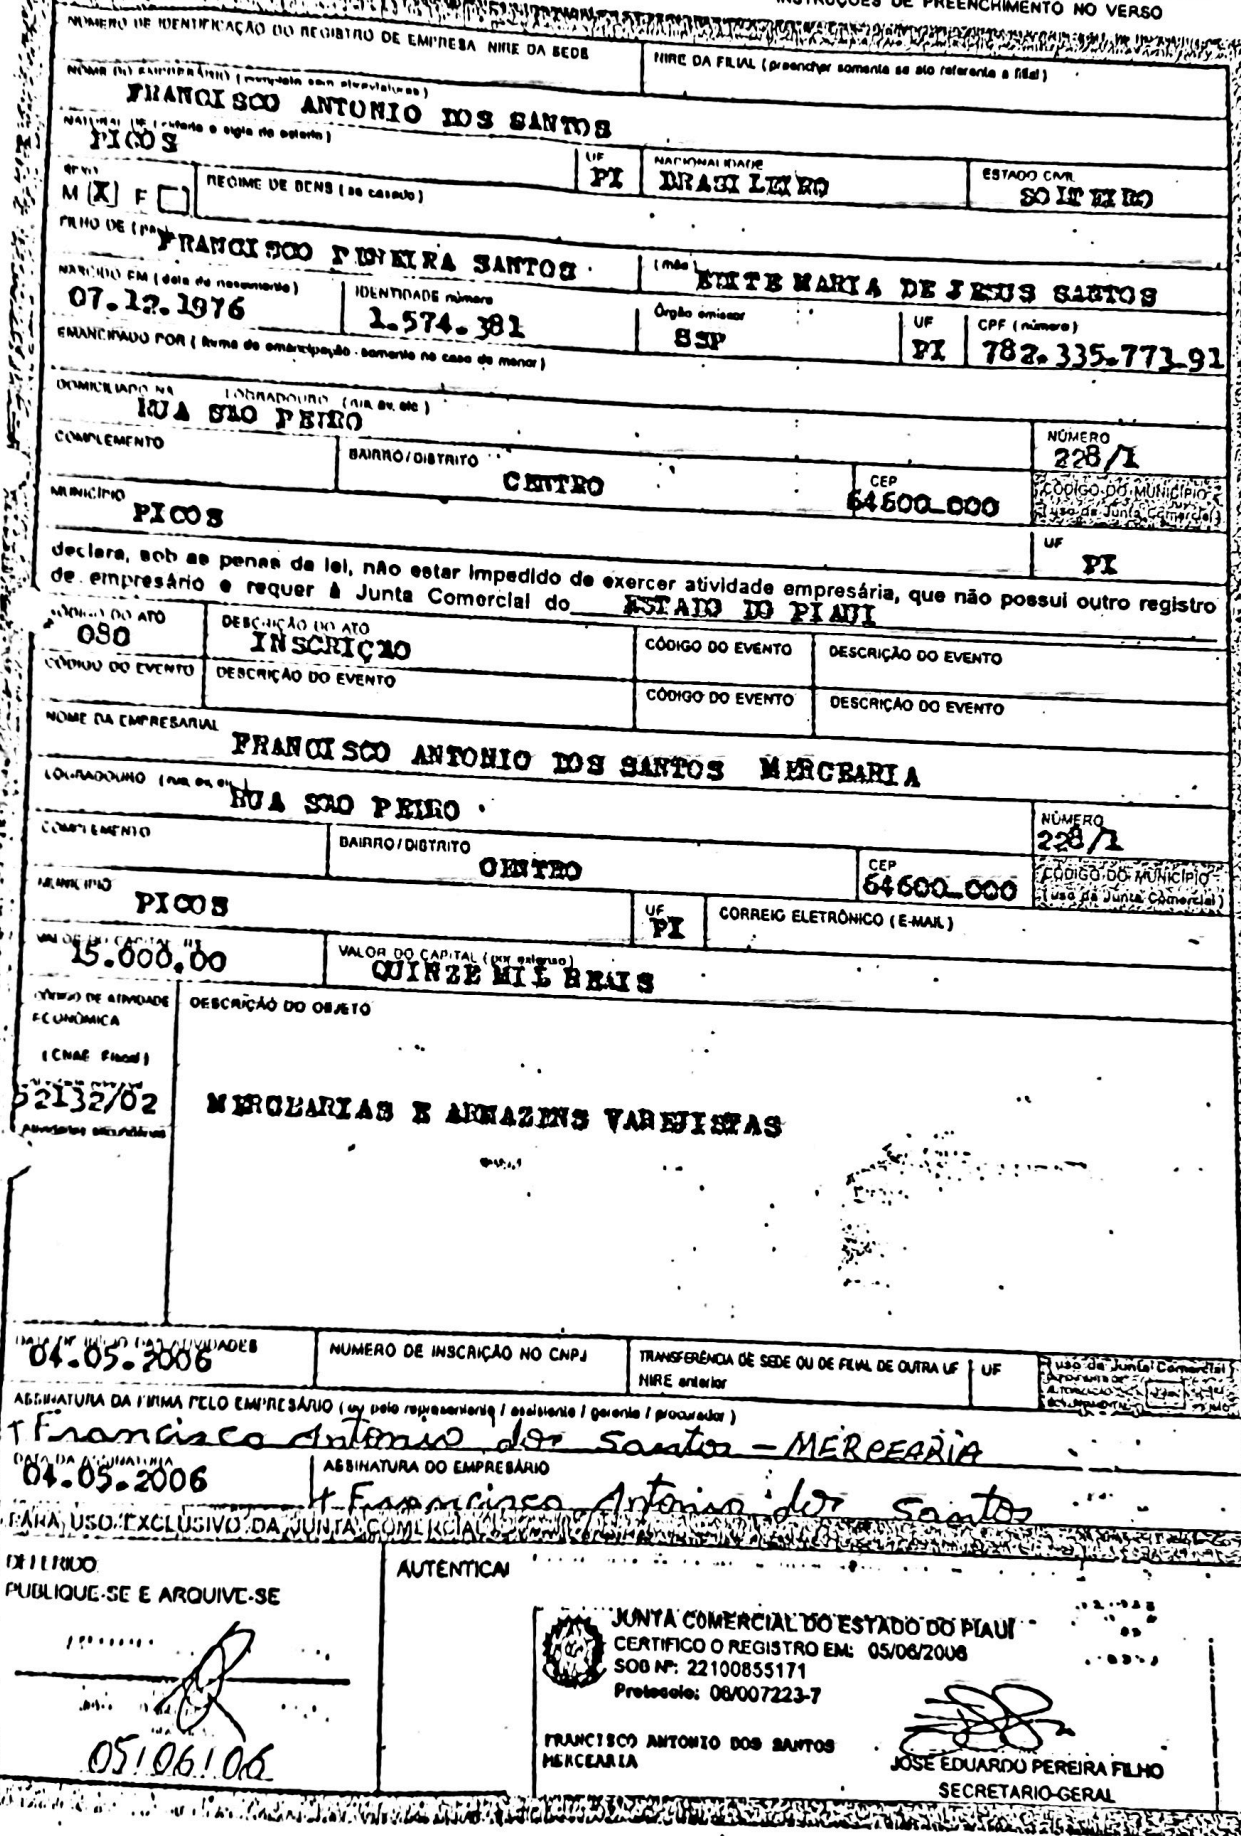 INSTRUÇÕES DE PREENCHIMENTO NO VERSO
NÚMERO DE IDENTIFICAÇÃO DO REGISTRO DE EMPRESA NIRE DA SEDE
NIRE DA FILIAL (preencher somente se ato referente a filial)
NOME DO EMPRESÁRIO (completo sem abreviaturas)
FRANCISCO ANTONIO DOS SANTOS
NATURAL DE (cidade e sigla do estado)
PICOS
UF
PI
NACIONALIDADE
BRASILEIRO
ESTADO CIVIL
SOLTEIRO
SEXO
M [X] F
REGIME DE BENS (se casado)
FILHO DE (pai)
FRANCISCO PEREIRA SANTOS
(mãe)
EDITE MARIA DE JESUS SANTOS
NASCIDO EM (data de nascimento)
07.12.1976
IDENTIDADE número
1.574.381
Órgão emissor
SSP
UF
PI
CPF (número)
782.335.773-91
EMANCIPADO POR (forma de emancipação - somente no caso de menor)
DOMICILIADO NA LOGRADOURO (rua, av, etc.)
RUA SÃO PEDRO
NÚMERO
228/1
COMPLEMENTO
BAIRRO/DISTRITO
CENTRO
CEP
64600-000
CÓDIGO DO MUNICÍPIO
(uso da Junta Comercial)
MUNICÍPIO
PICOS
UF
PI
declara, sob as penas da lei, não estar impedido de exercer atividade empresária, que não possui outro registro
de empresário e requer à Junta Comercial do ESTADO DO PIAUI
CÓDIGO DO ATO
080
DESCRIÇÃO DO ATO
INSCRIÇÃO
CÓDIGO DO EVENTO
DESCRIÇÃO DO EVENTO
CÓDIGO DO EVENTO
DESCRIÇÃO DO EVENTO
CÓDIGO DO EVENTO
DESCRIÇÃO DO EVENTO
NOME DA EMPRESARIAL
FRANCISCO ANTONIO DOS SANTOS MERCEARIA
LOGRADOURO (rua, av, etc.)
RUA SÃO PEDRO
NÚMERO
228/1
COMPLEMENTO
BAIRRO/DISTRITO
CENTRO
CEP
64600-000
CÓDIGO DO MUNICÍPIO
(uso da Junta Comercial)
MUNICÍPIO
PICOS
UF
PI
CORREIO ELETRÔNICO (E-MAIL)
VALOR DO CAPITAL R$
15.000,00
VALOR DO CAPITAL (por extenso)
QUINZE MIL REAIS
CÓDIGO DE ATIVIDADE
ECONÔMICA
(CNAE Fiscal)
52132/02
Atividades secundárias
DESCRIÇÃO DO OBJETO
MERCEARIAS E ARMAZENS VAREJISTAS
DATA DE INÍCIO DAS ATIVIDADES
04.05.2006
NUMERO DE INSCRIÇÃO NO CNPJ
TRANSFERÊNCIA DE SEDE OU DE FILIAL DE OUTRA UF
NIRE anterior
UF
uso da Junta Comercial
ASSINATURA DA FIRMA PELO EMPRESÁRIO (ou pelo representante / assistente / gerente / procurador)
Francisco Antonio dos Santos - MERCEARIA
DATA DA ASSINATURA
04.05.2006
ASSINATURA DO EMPRESÁRIO
Francisco Antonio dos Santos
PARA USO EXCLUSIVO DA JUNTA COMERCIAL
DEFERIDO
PUBLIQUE-SE E ARQUIVE-SE
05/06/06
AUTENTICA
JUNTA COMERCIAL DO ESTADO DO PIAUÍ
CERTIFICO O REGISTRO EM: 05/06/2006
SOB Nº: 22100855171
Protocolo: 06/007223-7
FRANCISCO ANTONIO DOS SANTOS
MERCEARIA
JOSÉ EDUARDO PEREIRA FILHO
SECRETARIO-GERAL